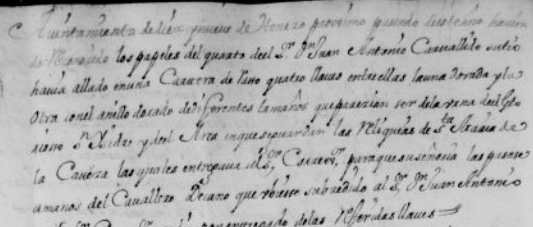 Ayuntamiento de diez y nueve de Henero proximo pasado de este año havien
do reconocido los papeles del quarto deel Sr. Dn. Juan Antonio Caravallido su tio
havia allado en una Caxera de lino quatro llaves entre ellas la una dorada y la
otra con el anillo dorado de diferentes tamaños que parezian ser de la rexa deel Glo
rioso Sn. Ysidro y deel Arca en que se guardan las Reliquias de Sta. Maria de
la Caveza las quales entregava al Sr. para que su señoria las pusiese
a manos del Cavallero Decano que huviese subzedido al Sr. Dn. Juan Antonio
entregado de las Referidas llaves